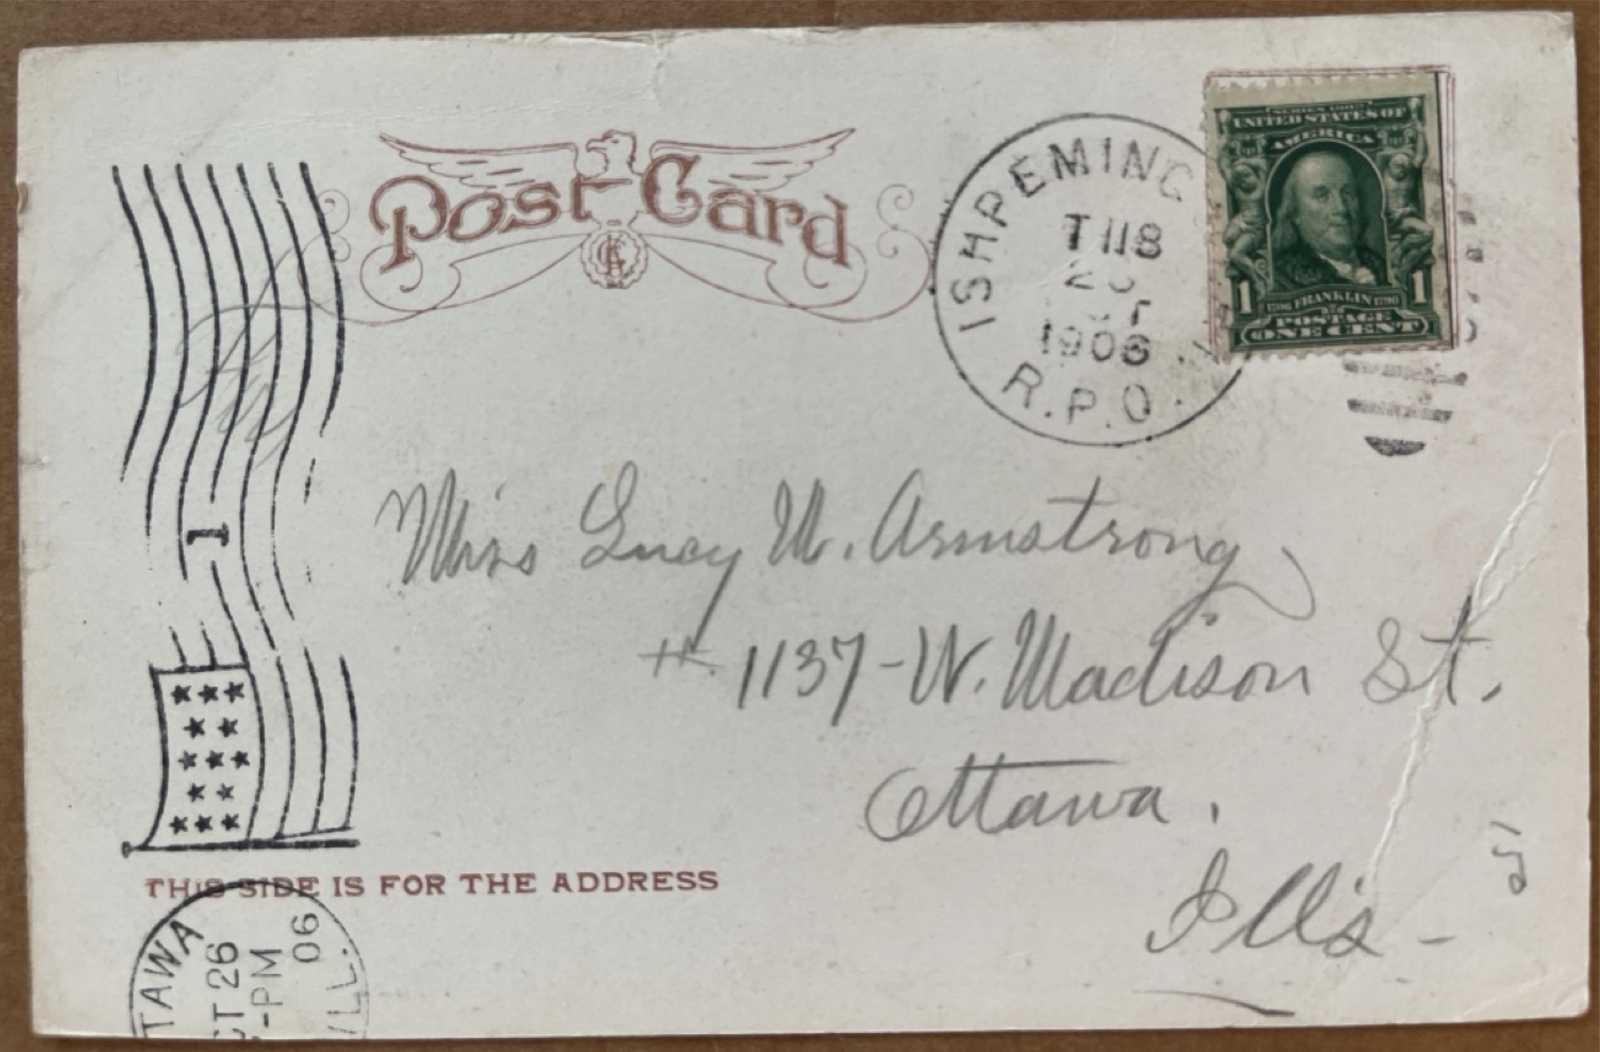 Post Card
ISHPEMING
T118
1906
R.P.O.
SERIES 1902
UNITED STATES OF
AMERICA
1 1
1706 FRANKLIN 1790
POSTAGE
ONE CENT
1
Miss Lucy W. Armstrong
1137-W. Madison St.
Ottawa.
Ills-
THIS SIDE IS FOR THE ADDRESS
TAWA
CT 26
-PM
06
ILL.